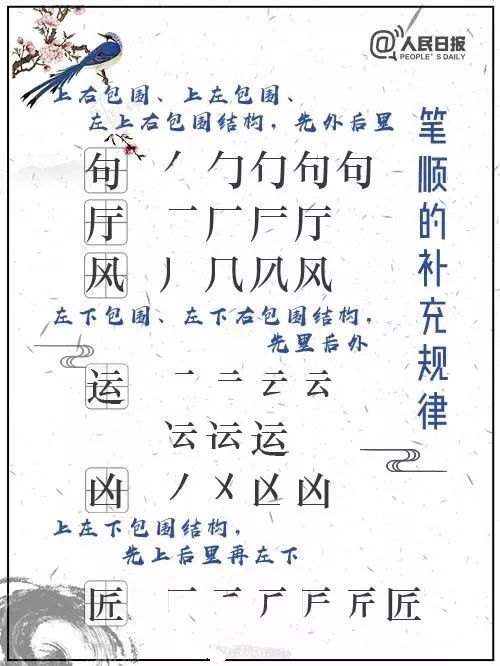 @人民日报
PEOPLE'S DAILY
笔顺的补充规律
上右包围、上左包围、
左上右包围结构，先外后里
句 ㇒ 勹 勹 句 句
厅 一 厂 厅
风 丿 几 风
左下包围、左下右包围结构，
先里后外
运 一 二 云 云
云 运 运
凶 丿 㐅 凶 凶
上左下包围结构，
先上后里再左下
匠 一 匠